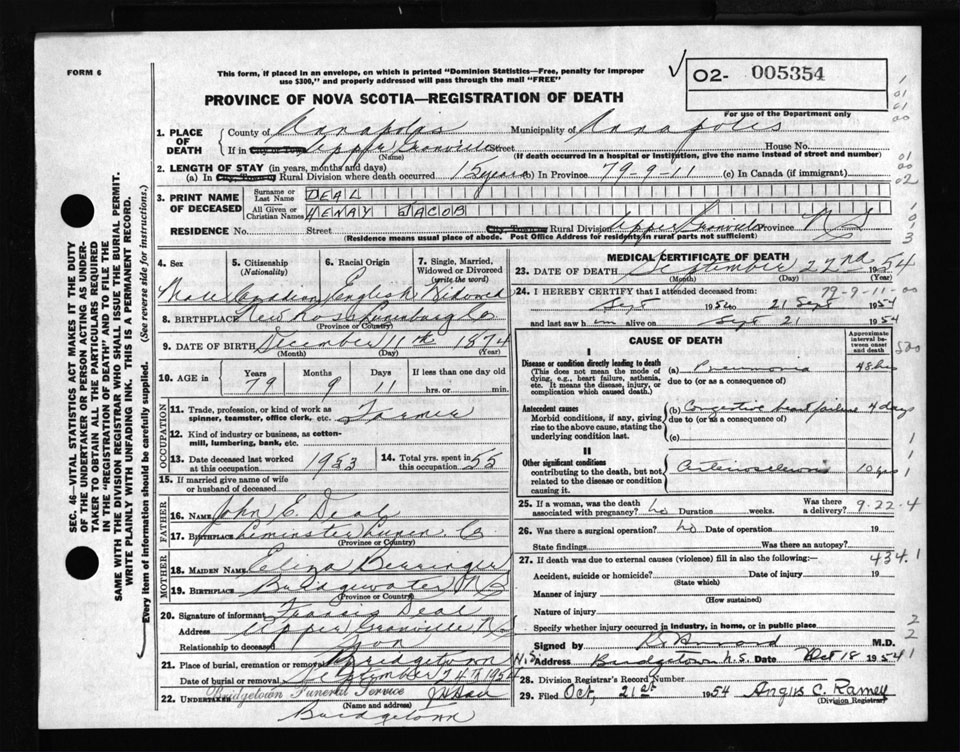 FORM 6
This form, if placed in an envelope, on which is printed "Dominion Statistics—Free, penalty for improper
use $300," and properly addressed will pass through the mail "FREE"
02- 005354
For use of the Department only
PROVINCE OF NOVA SCOTIA—REGISTRATION OF DEATH
1. PLACE OF DEATH
County of Annapolis Municipality of Annapolis
If in City or Town Upper Granville Street House No.
(Name) (If death occurred in a hospital or institution, give the name instead of street and number)
2. LENGTH OF STAY (in years, months and days)
(a) In City, Town or Rural Division where death occurred 15 years (b) In Province 79-9-11 (c) In Canada (if immigrant)
3. PRINT NAME OF DECEASED
Surname or Last Name DEAL
All Given or Christian Names HENRY JACOB
RESIDENCE No. Street City, Town or Rural Division Upper Granville Province N S
(Residence means usual place of abode. Post Office Address for residents in rural parts not sufficient)
4. Sex
Male
5. Citizenship (Nationality)
Canadian
6. Racial Origin
English
7. Single, Married, Widowed or Divorced (write the word)
Widowed
8. BIRTHPLACE New Ross Lunenburg Co
(Province or Country)
9. DATE OF BIRTH December 11th 1874
(Month) (Day) (Year)
10. AGE in Years Months Days If less than one day old
79 9 11 hrs. or min.
OCCUPATION
11. Trade, profession, or kind of work as spinner, teamster, office clerk, etc. Farmer
12. Kind of industry or business, as cotton-mill, lumbering, bank, etc.
13. Date deceased last worked at this occupation 1953
14. Total yrs. spent in this occupation 55
15. If married give name of wife or husband of deceased
FATHER
16. NAME John E. Deal
17. BIRTHPLACE Leminster Lunen. Co
(Province or Country)
MOTHER
18. MAIDEN NAME Eliza Berringer
19. BIRTHPLACE Bridgewater N S
(Province or Country)
20. Signature of informant Francis Deal
Address Upper Granville N S
Relationship to deceased Son
21. Place of burial, cremation or removal Bridgetown
Date of burial or removal September 24th 1954
22. UNDERTAKER Bridgetown Funeral Service
(Name and address)
Bridgetown
MEDICAL CERTIFICATE OF DEATH
23. DATE OF DEATH September 22nd 1954
(Month) (Day) (Year)
79-9-11-00
24. I HEREBY CERTIFY that I attended deceased from:
Sept 1950 to 21 Sept 1954
and last saw him alive on Sept 21 1954
CAUSE OF DEATH
Approximate interval between onset and death
I
Disease or condition directly leading to death
(This does not mean the mode of dying, e.g., heart failure, asthenia, etc. It means the disease, injury, or complication which caused death.)
(a) Pneumonia 48 hrs
due to (or as a consequence of)
Antecedent causes
Morbid conditions, if any, giving rise to the above cause, stating the underlying condition last.
(b) Congestive heart failure 4 days
due to (or as a consequence of)
(c)
II
Other significant conditions
contributing to the death, but not related to the disease or condition causing it.
Arteriosclerosis 10 yrs
25. If a woman, was the death associated with pregnancy? No Duration weeks. Was there a delivery?
9-22-4
26. Was there a surgical operation? No Date of operation 19
State findings Was there an autopsy?
27. If death was due to external causes (violence) fill in also the following:—
434.1
Accident, suicide or homicide? Date of injury 19
(State which)
Manner of injury
(How sustained)
Nature of injury
Specify whether injury occurred in industry, in home, or in public place
Signed by M.D.
Address Bridgetown N.S. Date Oct 18 1954
28. Division Registrar's Record Number
29. Filed Oct. 21st 1954 Angus C. Ramey
(Division Registrar)
SEC. 46—VITAL STATISTICS ACT MAKES IT THE DUTY
OF THE UNDERTAKER OR PERSON ACTING AS UNDER-
TAKER TO OBTAIN ALL THE PARTICULARS REQUIRED
IN THE "REGISTRATION OF DEATH" AND TO FILE THE
SAME WITH THE DIVISION REGISTRAR WHO SHALL ISSUE THE BURIAL PERMIT.
WRITE PLAINLY WITH UNFADING INK. THIS IS A PERMANENT RECORD.
Every item of information should be carefully supplied. (See reverse side for instructions.)